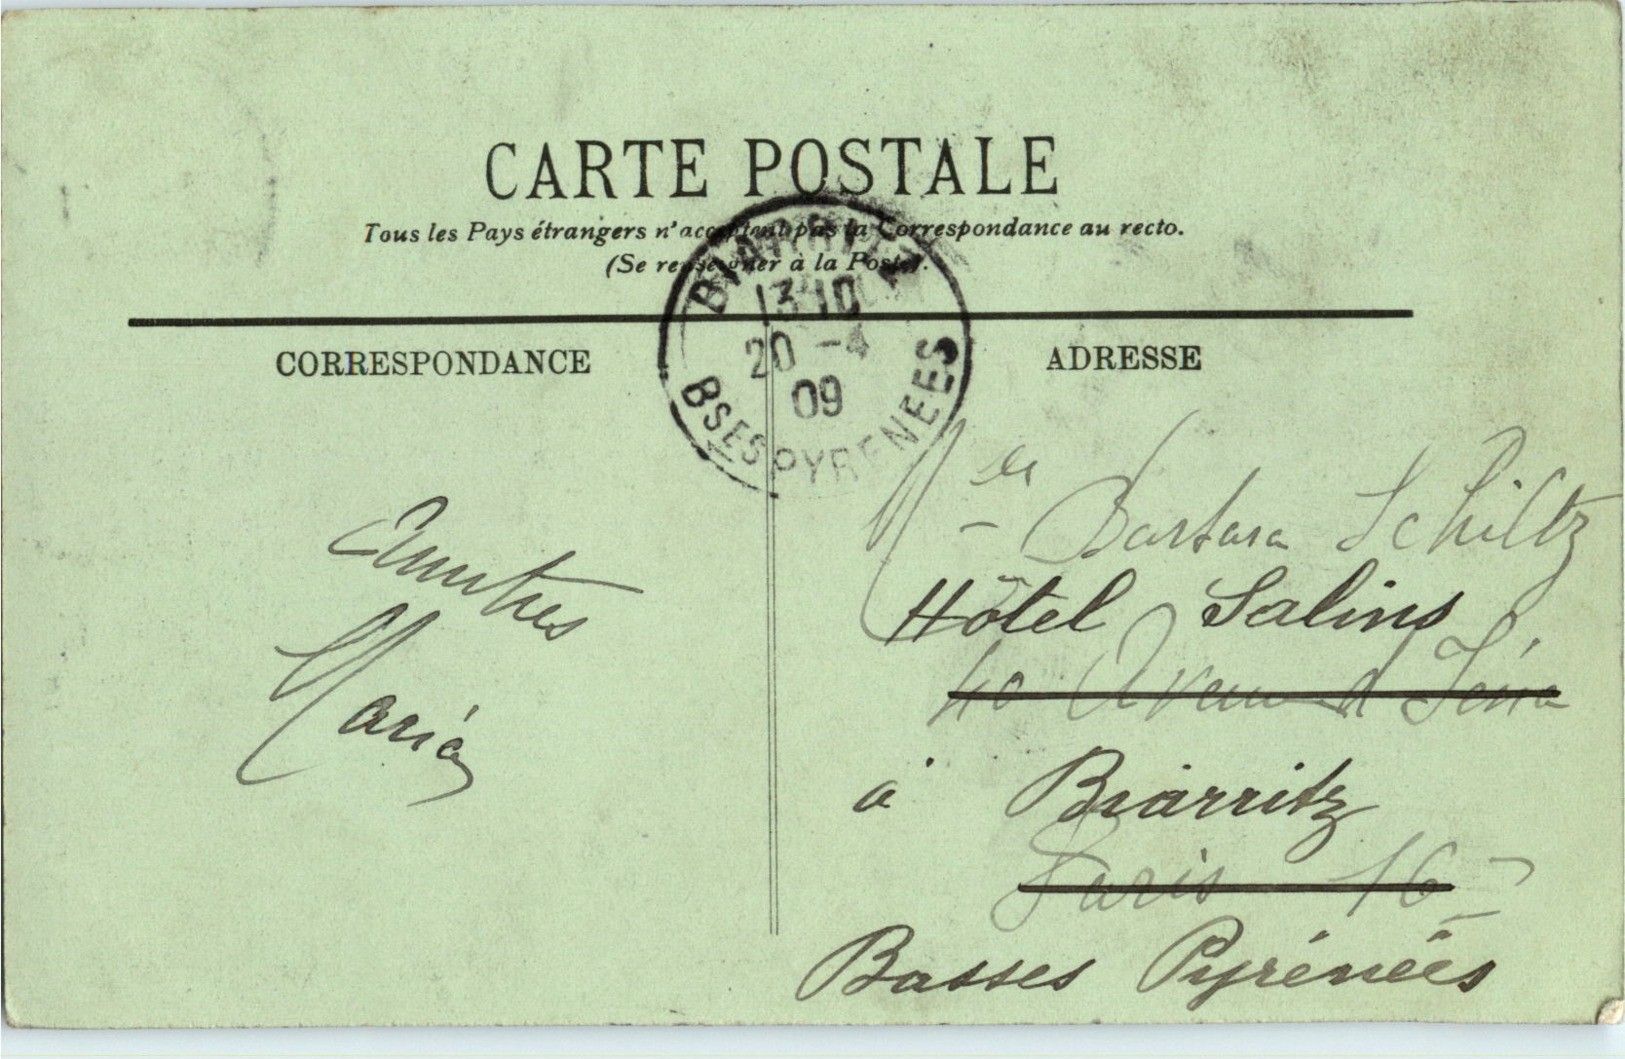 CARTE POSTALE
Tous les Pays étrangers n'acceptent pas la Correspondance au recto.
(Se renseigner à la Poste).
BIARRITZ
13 10
20 -4
09
BSES PYRENEES
CORRESPONDANCE
ADRESSE
Amitiés
Maria
Melle Barbara Schiltz
Hôtel Salins
40 Avenue d'Iéna
à Biarritz
Paris 16
Basses Pyrénées